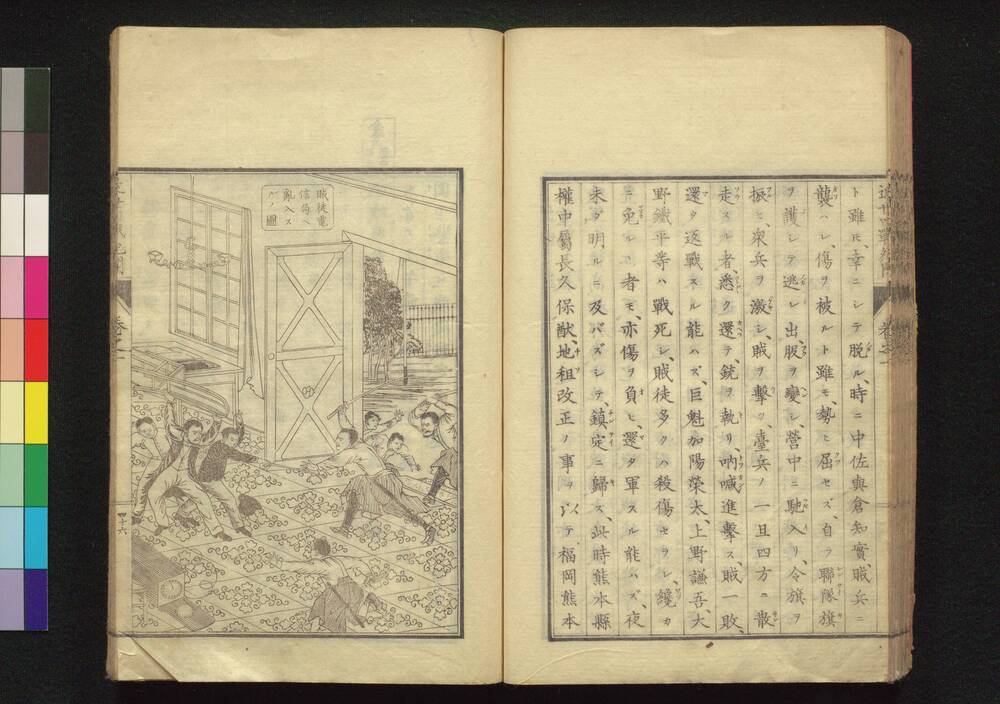 ト雖モ、幸ニシテ脱ル、時ニ中佐與倉知實、賊兵ニ
襲ハレ、傷ヲ被ルト雖モ、勢ヒ屈セズ、自ラ聯隊旗
ヲ護シテ逃レ出、服ヲ變シ、營中ニ馳入リ、令旗ヲ
振ヒ、衆兵ヲ激シ、賊ヲ擊ツ、臺兵ノ一旦四方ニ散
走スル者、悉ク還テ、銃ヲ執リ、吶喊進擊ス、賊一敗、
還タ返戰スル能ハズ、巨魁加陽榮太、上野謙吾、大
野鐵平等ハ戰死シ、賊徒多クハ殺傷セラレ、纔カ
ニ免ルヽ者モ、亦傷ヲ負ヒ、還タ軍スル能ハズ、夜
未ダ明ルニ及バズシテ、鎮定ニ歸ス、此時熊本縣
權中屬長久保猷、地租改正ノ事ヲ以テ福岡熊本
賊徒電
信局ヘ
亂入ス
ルノ圖
四十六